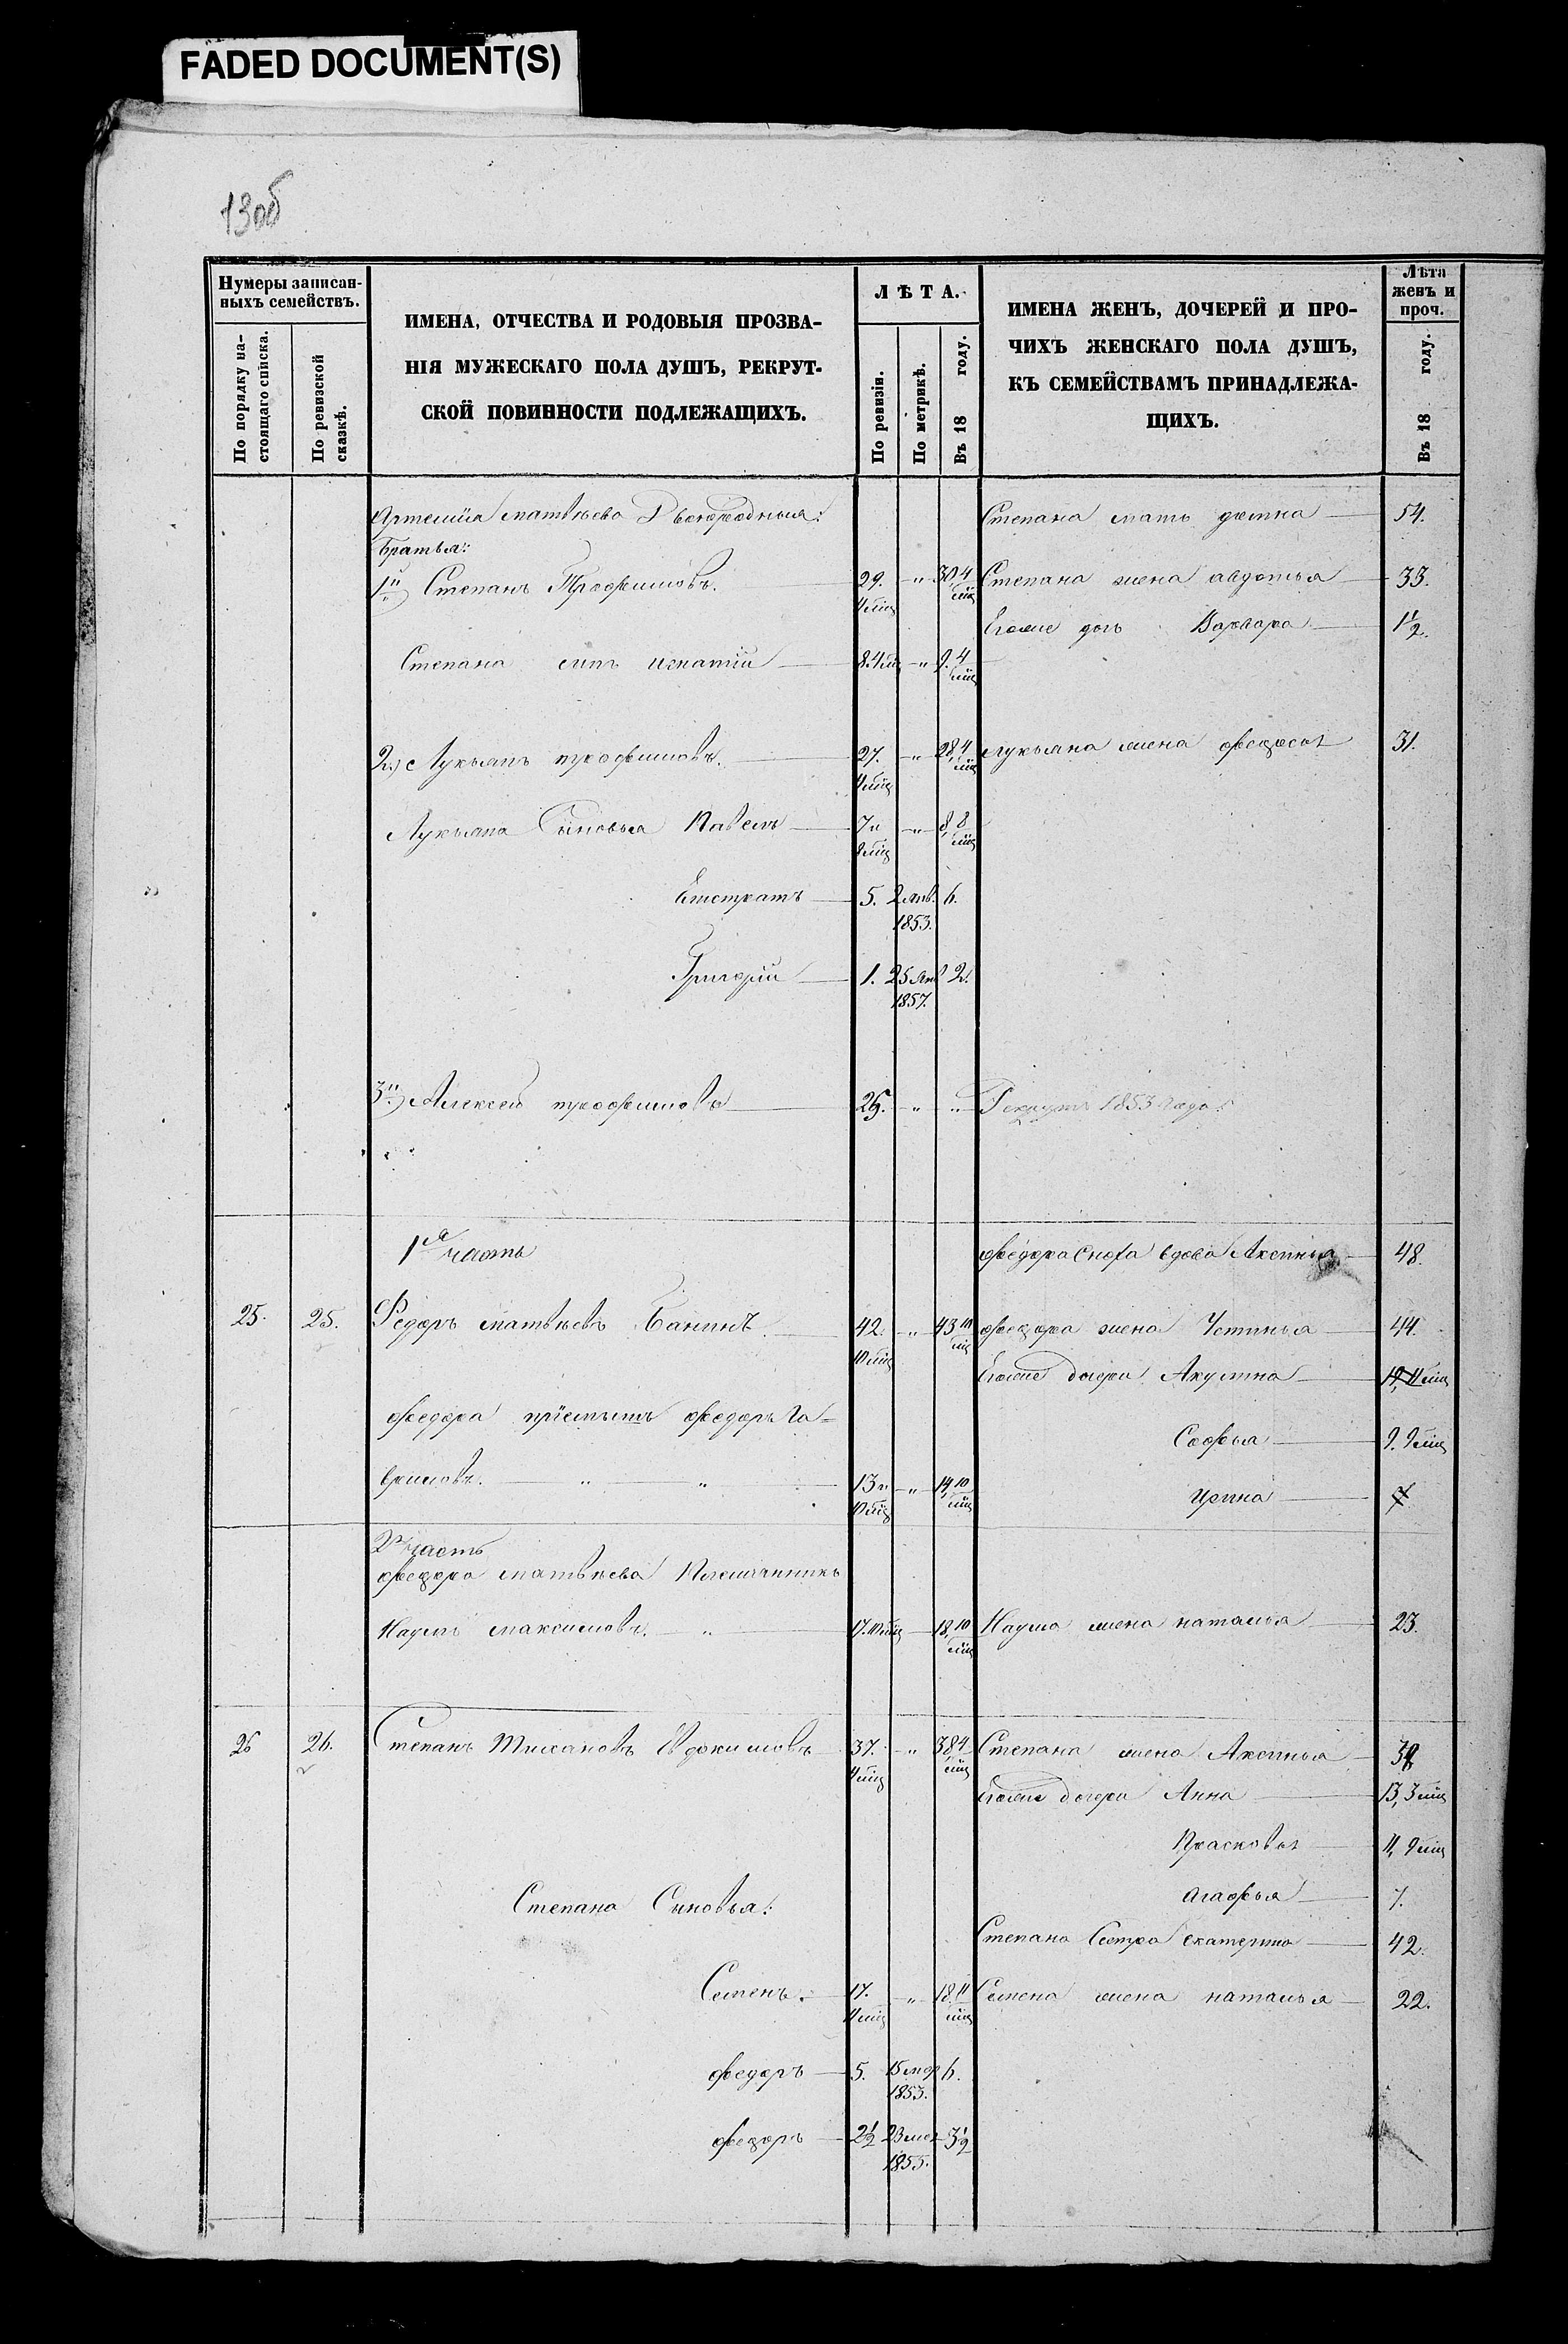 FADED DOCUMENT(S)
13об
Нумеры записан-
ныхъ семействъ.
По порядку на-
стоящаго списка.
По ревизской
сказкѣ.
ИМЕНА, ОТЧЕСТВА И РОДОВЫЯ ПРОЗВА-
НІЯ МУЖЕСКАГО ПОЛА ДУШЪ, РЕКРУТ-
СКОЙ ПОВИННОСТИ ПОДЛЕЖАЩИХЪ.
ЛѢТА.
По ревизіи.
По метрикѣ.
Въ 18 году.
ИМЕНА ЖЕНЪ, ДОЧЕРЕЙ И ПРО-
ЧИХЪ ЖЕНСКАГО ПОЛА ДУШЪ,
КЪ СЕМЕЙСТВАМЪ ПРИНАДЛЕЖА-
ЩИХЪ.
Лѣта
женъ и
проч.
Въ 18 году.
Артемія матвѣева Двоюродныя: Степана мать 54.
Братья:
1й) Степанъ Трофимовъ. 29. 4 мѣц „ 30, 4 мѣц Степана жена авдотья 33.
Егоже дочь Варвара 1½.
Степана сынъ игнатій 8. 4 мѣц „ 9. 4 мѣц
2й) Лукьянъ трофимовъ. 27. 4 мѣц „ 28, 4 мѣц Лукьяна жена федосья 31.
Лукьяна Сыновья Павелъ 7 „ 8 мѣц „ 8, 8 мѣц
Евстратъ 5. 2 янв. 1853. 6.
Григорій 1. 25 янв 1857. 2.
3й) Алексей трофимовъ 25. „ „ Рекрутъ 1853 года.
1я часть федора сноха вдова Аксинья 48.
25. 25. Федоръ матвѣевъ Банинъ 42. 10 мѣц „ 43, 10 мѣц федора жена Устинья 44.
Егоже дочери Акулина 19, 4 мѣц
федора пріемышъ федоръ Га-
Софья 9. 9 мѣц
вриловъ. „ „ 13 „ 10 мѣц „ 14, 10 мѣц
Ирина 7
2я часть
федора матвѣева Племянникъ
Наумъ максимовъ. „ 17. 10 мѣц 18, 10 мѣц Наума жена наталья 23.
26 26. Степанъ Тихановъ Евдокимовъ 37. 4 мѣц „ 38, 4 мѣц Степана жена Аксинья 38
Егоже дочери Анна 13, 3 мѣц
Прасковья 11, 9 мѣц
Степана Сыновья: агафья 7.
Степана Сестра екатерина 42.
Семенъ. 17. 11 мѣц „ 18, 11 мѣц Семена жена наталья 22.
федоръ 5. 15 1853. 6.
федоръ 2½ 23 1855. 3½